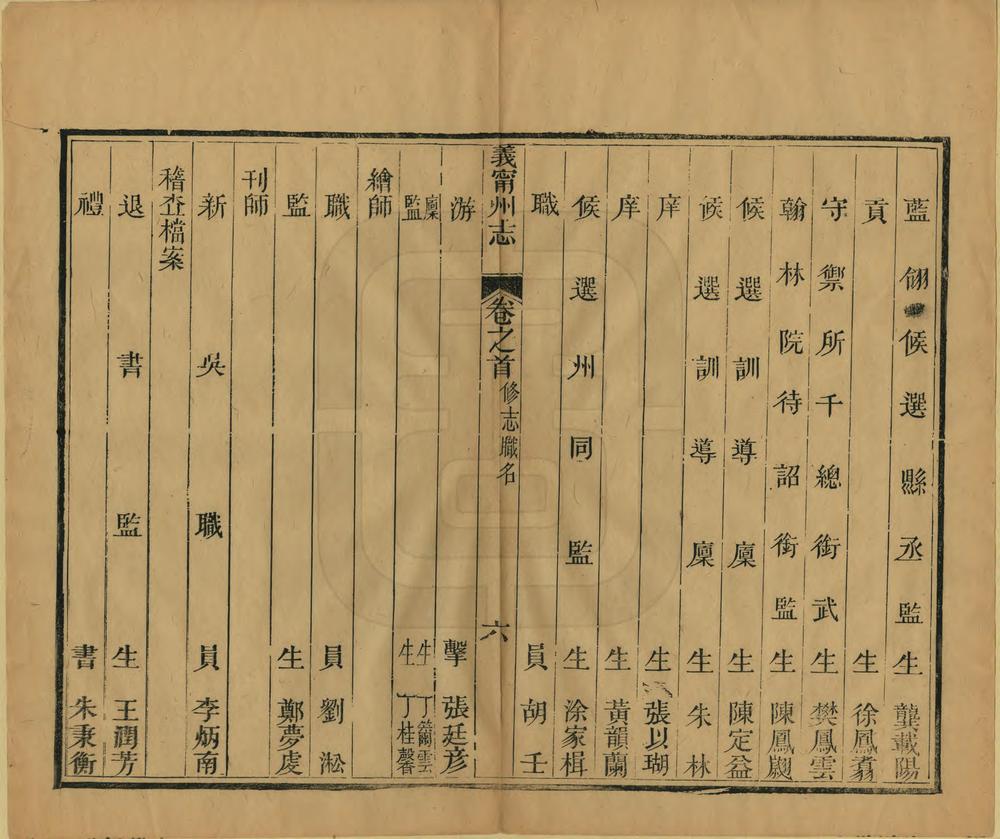 藍翎候選縣丞監生龔載陽
貢生徐鳳翥
守禦所千總銜武生樊鳳雲
翰林院待詔銜監生陳鳳翽
候選訓導廩生陳定益
候選訓導廩生朱林
庠生張以瑚
庠生黃韻蘭
候選州同監生涂家楫
職員胡壬
義甯州志 卷之首 修志職名 六
游擊張廷彥
廩生丁籋雲
監生丁桂馨
繪師
職員劉淞
監生鄭夢虔
刊師
新吳職員李炳南
稽查檔案
退書監生王潤芳
禮書朱秉衡